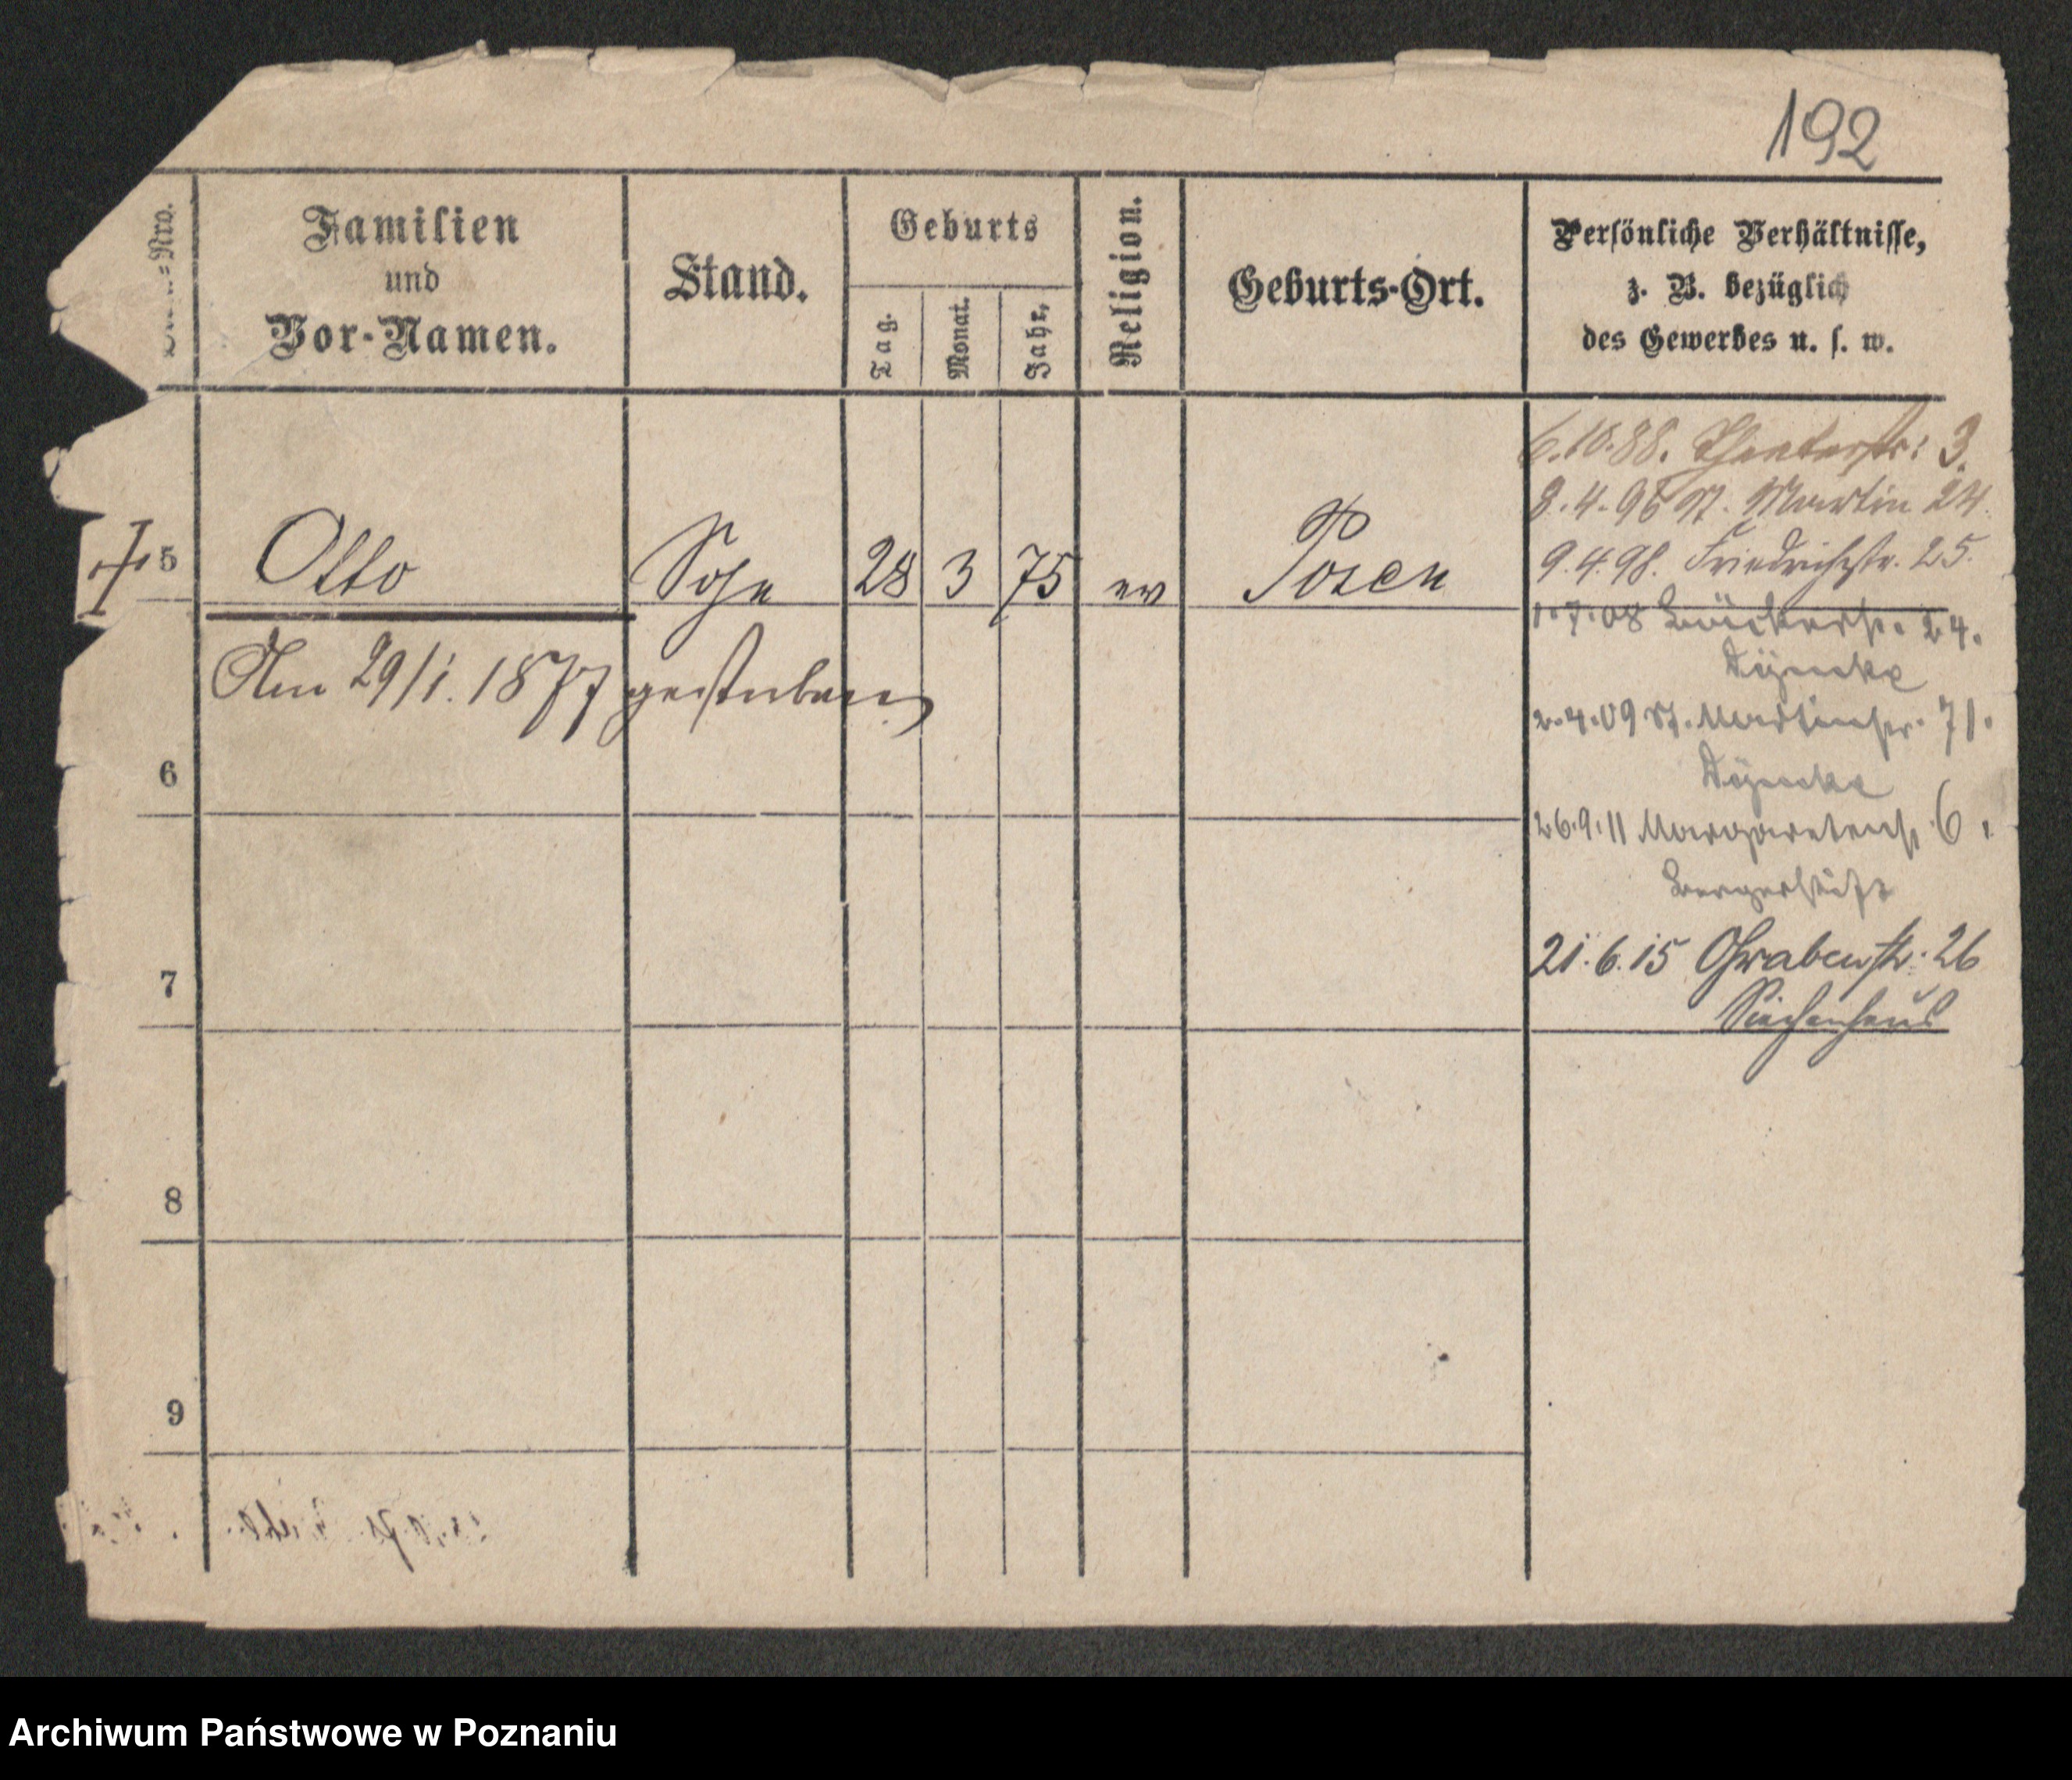 192
Nro.
Familien
und
Vor-Namen.
Stand.
Geburts
Tag.
Monat.
Jahr,
Religion.
Geburts-Ort.
Persönliche Verhältnisse,
z. B. bezüglich
des Gewerbes u. s. w.
6.10.88. Theaterstr: 3.
8.4.96 St. Martin 24.
9.4.98. Friedrichstr. 25.
5 Otto Sohn 28 3 75 ev Posen
1.7.08 Bäckerstr. 24.
Am 29/1. 1877 gestorben
2.4.09 St. Martinstr. 71.
6
26.9.11 Margaretenstr. 6.
Bergerstift
21.6.15 Grabenstr. 26
Siechenhaus
7
8
9
Archiwum Państwowe w Poznaniu